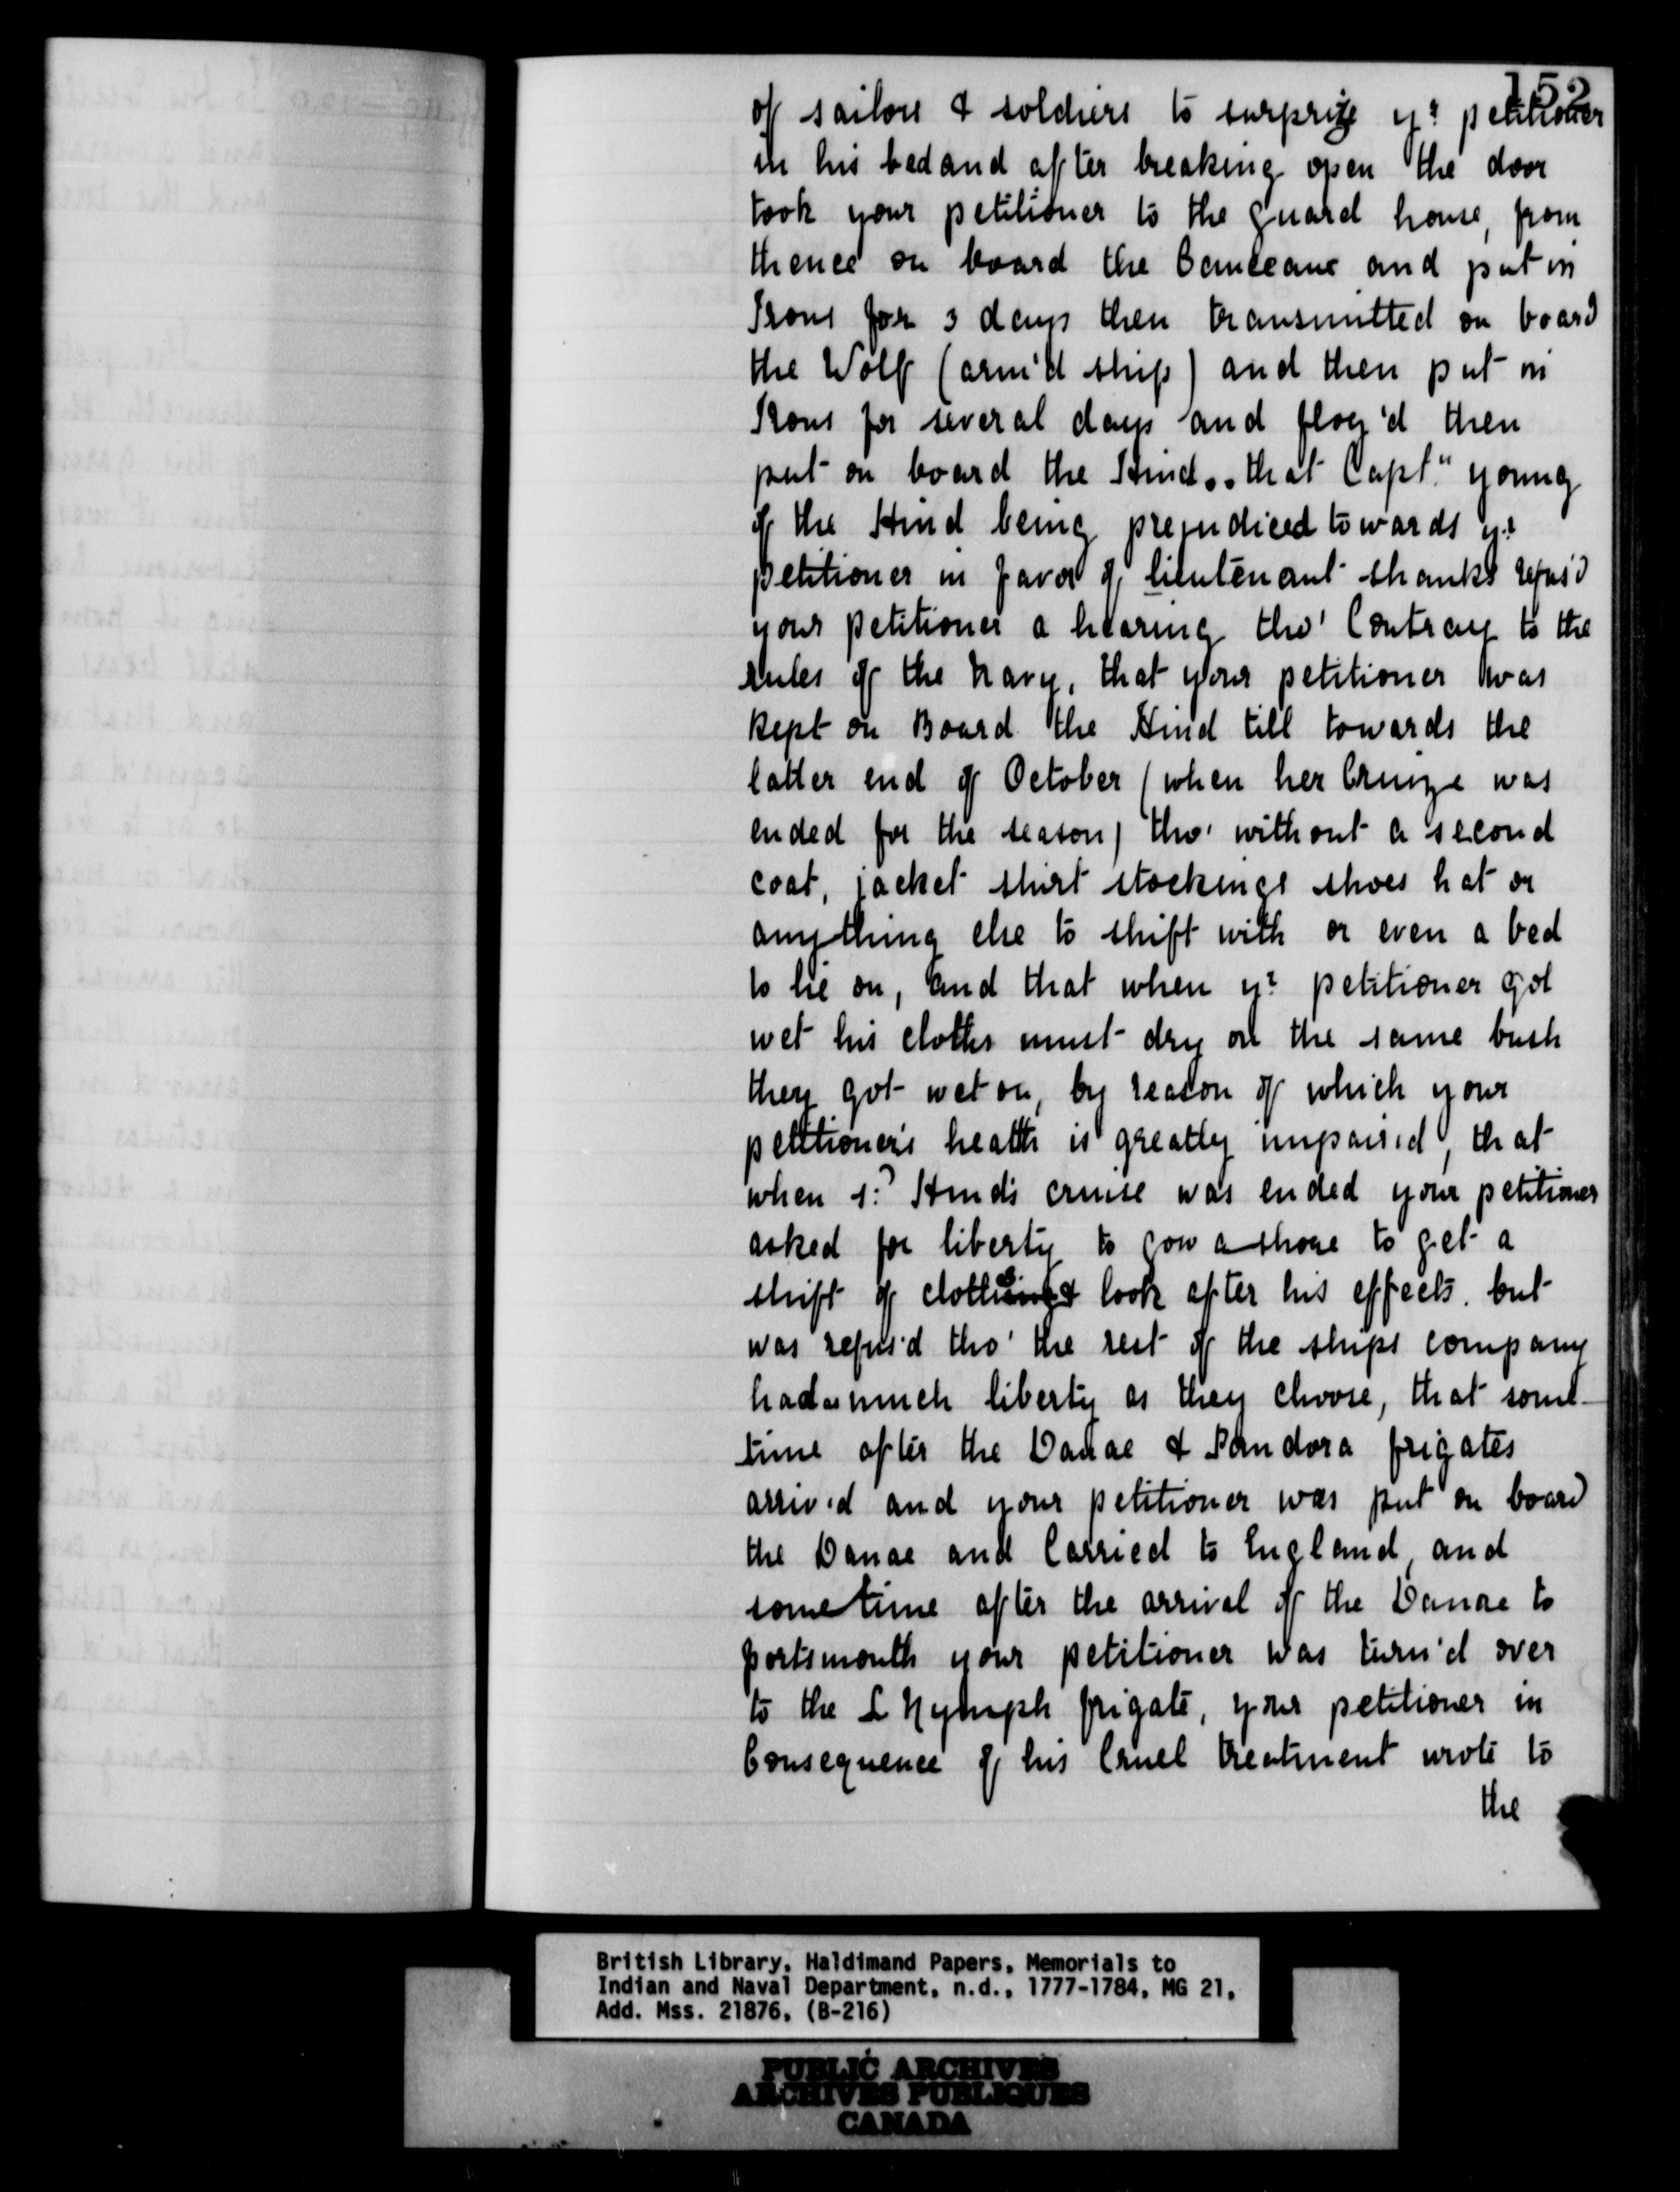 152
of sailors & soldiers to surprize yr petitioner
in his bed and after breaking open the door
took your petitioner to the guard house, from
thence on board the Canceaux and put in
Irons for 3 days then transmitted on board
the Wolf (arm'd ship) and then put in
Irons for several days and flog'd then
put on board the Hind.. that Captn young
of the Hind being prejudiced towards yr
petitioner in favor of lieutenant shanks refus'd
your petitioner a hearing tho' Contrary to the
rules of the navy, that your petitioner was
kept on Board the Hind till towards the
latter end of October (when her Cruize was
ended for the season) tho' without a second
coat, jacket shirt stockings shoes hat or
anything else to shift with or even a bed
to lie on, and that when yr petitioner got
wet his cloths must dry on the same bush
they got wet on, by reason of which your
petitioner's health is greatly impair'd, that
when sd Hind's cruise was ended your petitioner
asked for liberty to gow a shore to get a
shift of clothing & look after his effects. but
was refus'd tho' the rest of the ships company
had as much liberty as they choose, that some
time after the Danae & Pandora frigates
arriv'd and your petitioner was put on board
the Danae and Carried to England, and
sometime after the arrival of the Danae to
portsmouth your petitioner was turn'd over
to the L Nymph frigate, your petitioner in
Consequence of his Cruel treatment wrote to
the
British Library, Haldimand Papers, Memorials to
Indian and Naval Department, n.d., 1777-1784, MG 21,
Add. Mss. 21876, (B-216)
PUBLIC ARCHIVES
ARCHIVES PUBLIQUES
CANADA